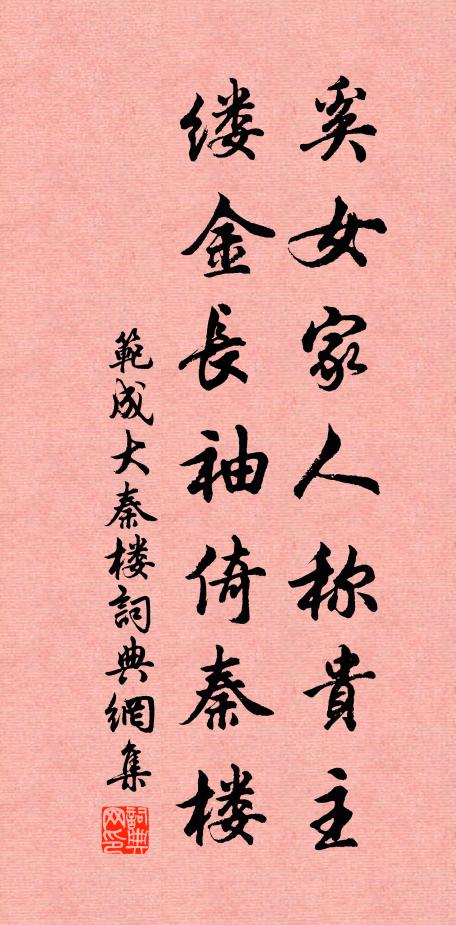 奚女家人称貴主
缕金長袖倚秦楼
範成大秦楼詞典網集
詞典网印